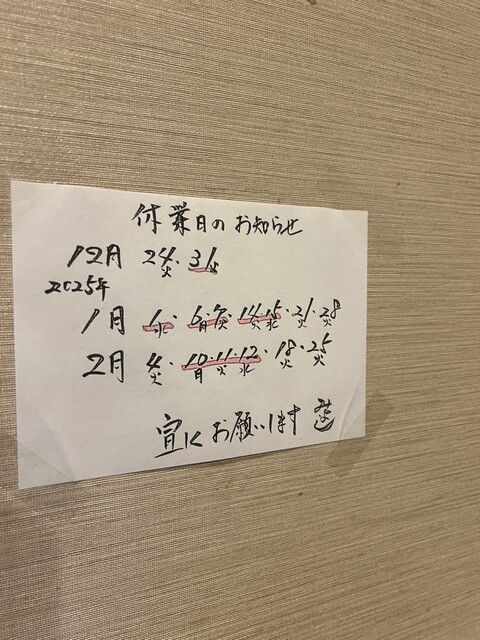 休業日のお知らせ
12月 24火・31火
2025年
1月 1水・6月・7火・14火・15水・21火・28火
2月 4火・10月・11火・12水・18火・25火
宜しくお願いします